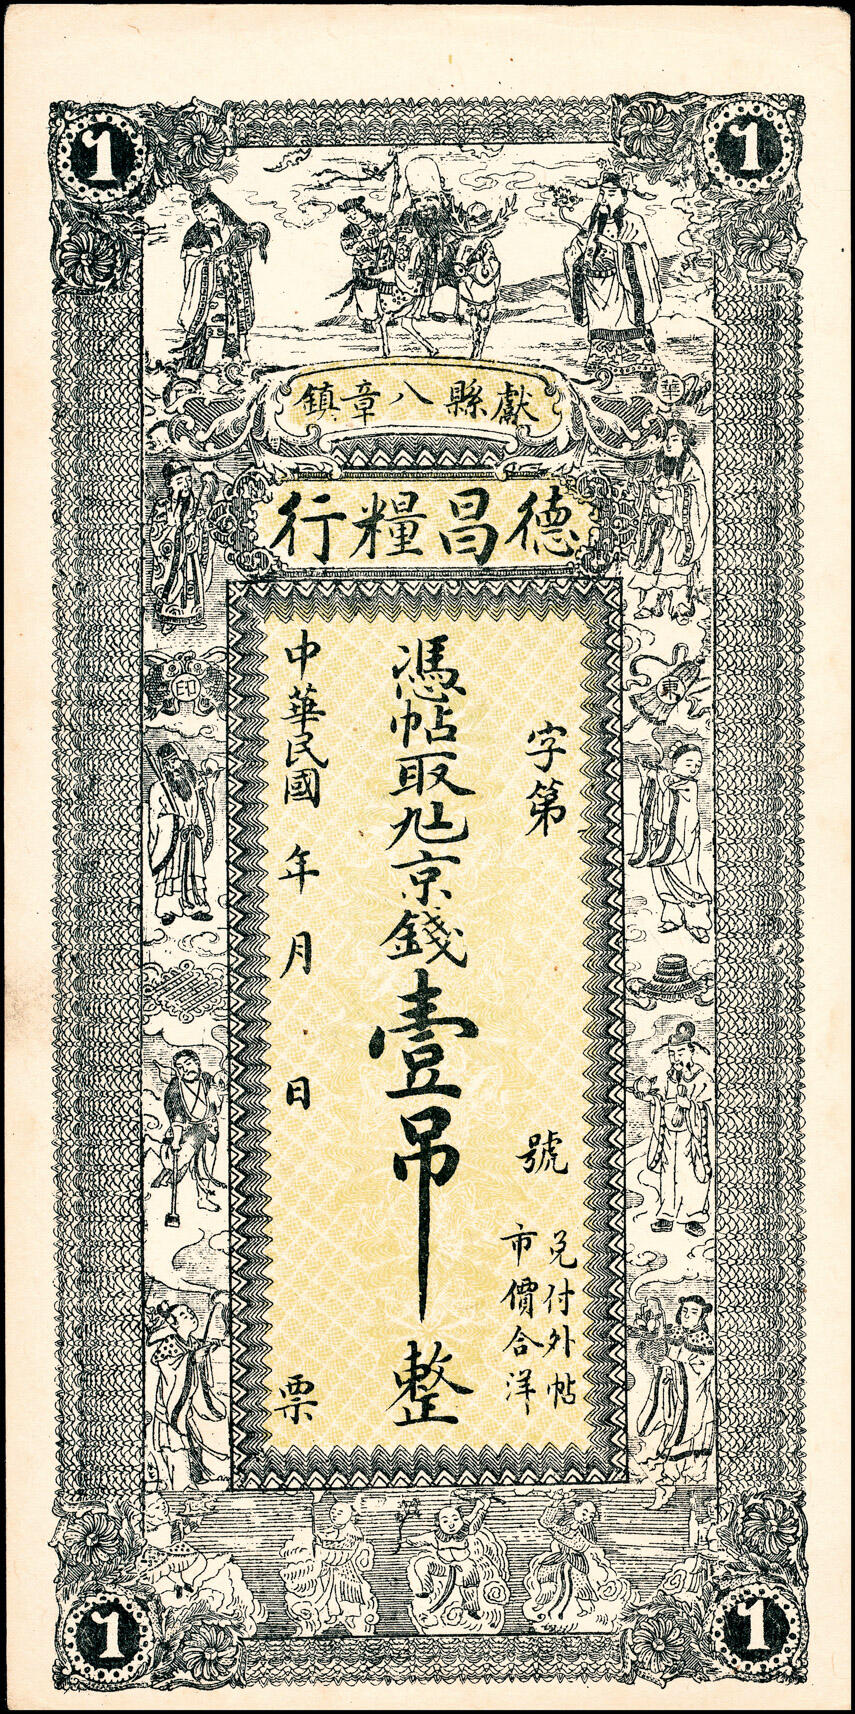 1 1
獻縣八章鎮
德昌糧行
華
東
印
字第 號
兌付外帖
市價合洋
憑帖取九京錢壹吊整
中華民國 年 月 日 票
1 1